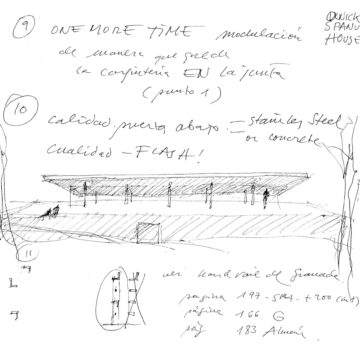 9 ONE MORE TIME modulación
OLNICK
SPANU
HOUSE
de manera que quede
la carpintería EN la junta
(punto 1)
10
calidad puerta abajo = stainley Steel
or concrete
cualidad - FLASH!
11
ver handrail de Granada
pagina 197 - + 200
página 166 G
pág 183 Almería